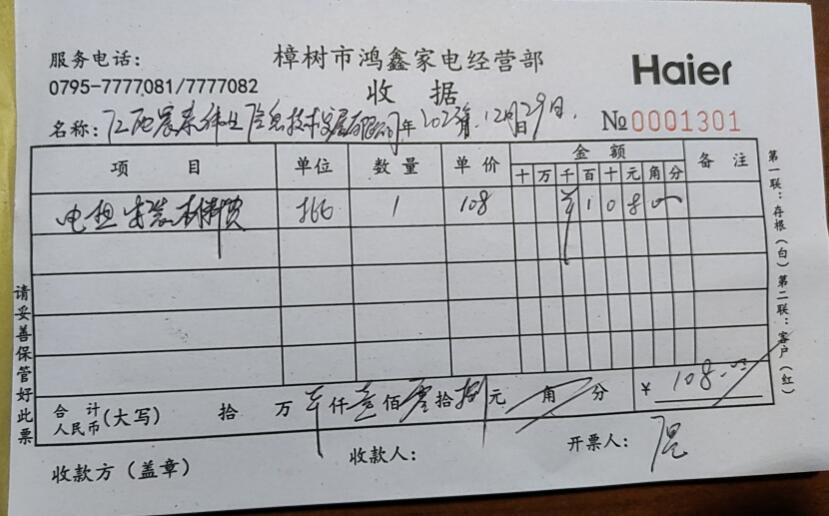 服务电话：
0795-7777081/7777082
樟树市鸿鑫家电经营部
收 据
Haier
名称：江西 信息技术发展有限公司 年 2023年 12月29日
№0001301
项 目 单位 数量 单价 金额 备注
十 万 千 百 十 元 角 分
电 安装材料费 1 108 ¥ 1 0 8
合计人民币(大写) 拾 万 仟 壹 佰 零 拾 捌 元 角 分 ¥ 108.00
收款方（盖章） 收款人： 开票人：
请妥善保管好此票
第一联：存根（白）第二联：客户（红）